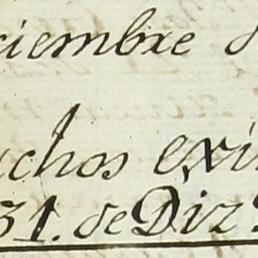 ciembre d
chos exi
31. de Diz